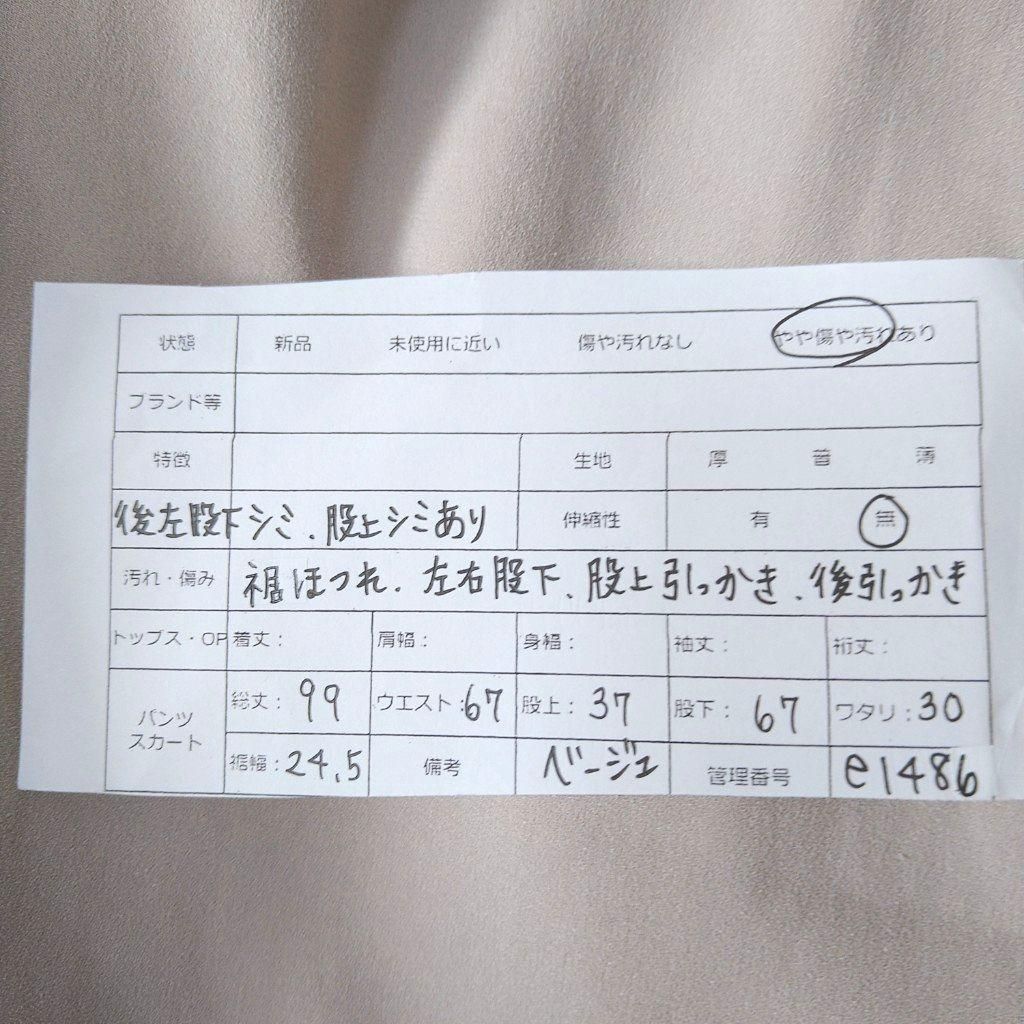 状態 新品 未使用に近い 傷や汚れなし やや傷や汚れあり
ブランド等
特徴 生地 厚 普 薄
後左股下シミ、股上シミあり 伸縮性 有 無
汚れ・傷み 裾ほつれ、左右股下、股上引っかき、後引っかき
トップス・OP 着丈： 肩幅： 身幅： 袖丈： 裄丈：
パンツ スカート 総丈：99 ウエスト：67 股上：37 股下：67 ワタリ：30
裾幅：24.5 備考 ベージュ 管理番号 e1486